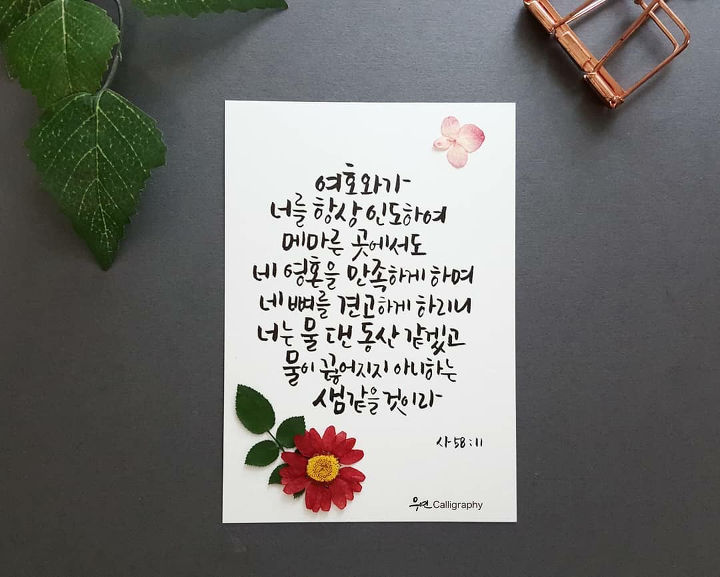 여호와가
너를 항상 인도하여
메마른 곳에서도
네 영혼을 만족하게 하며
네 뼈를 견고하게 하리니
너는 물 댄 동산 같겠고
물이 끊어지지 아니하는
샘 같을 것이라
사 58:11
우연 Calligraphy